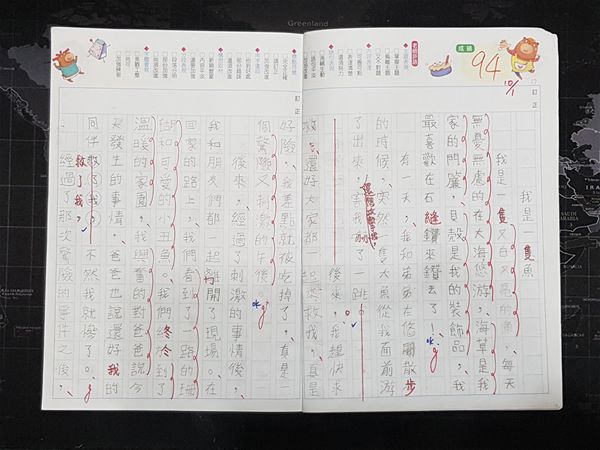 我是一隻魚
我是一隻又白又亮的魚，每天
無憂無慮的在大海悠游，海草是我
家的門簾，貝殼是我的裝飾品，我
最喜歡在石縫鑽來鑽去了！
有一天，我和弟弟在悠閒散步
的時候，突然一隻大魚從我面前游
了出來，害我嚇了一跳
後來，我趕快求
救，還好大家都一起來救我，真是
好險，我差點就被吃掉了，真是一
個驚險又刺激的午後
後來，經過了刺激的事情後，
我和朋友們都一起離開了現場。在
回家的路上，我們看到了一路的珊
瑚和可愛的小丑魚。我們終於到了
溫暖的家園，我興奮的對爸爸說今
天發生的事情，爸爸也說還好我的
同伴救了我，不然我就慘了。
經過了那次驚險的事件之後，
成績
94
10/1
訂正
訂正
救了我，
ok
ok
Greenland
SAUDI ARABIA